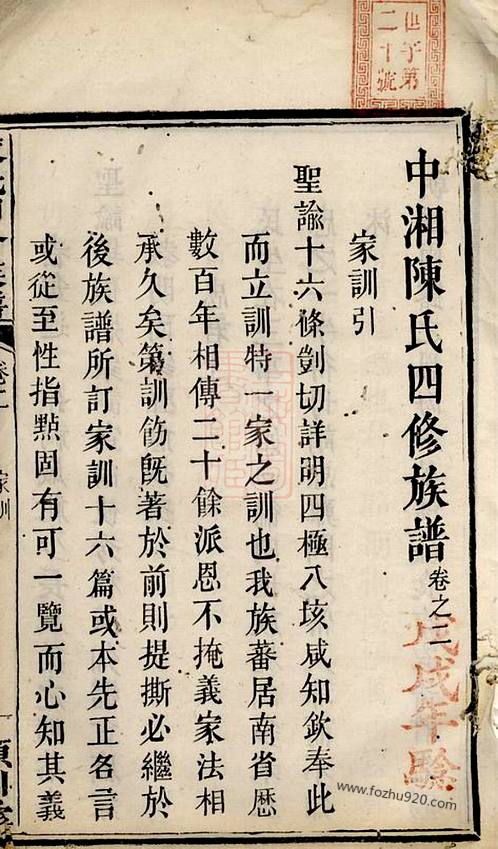 中湘陳氏四修族譜卷之二
家訓引
聖諭十六條剴切詳明四極八垓咸知欽奉此
而立訓特一家之訓也我族蕃居南省歷
數百年相傳二十餘派恩不掩義家法相
承久矣第訓飭旣著於前則提撕必繼於
後族譜所訂家訓十六篇或本先正名言
或從至性指㸃固有可一覽而心知其義
卷二
家訓
字第
二十號
戊戌年驗
www.fozhu920.com